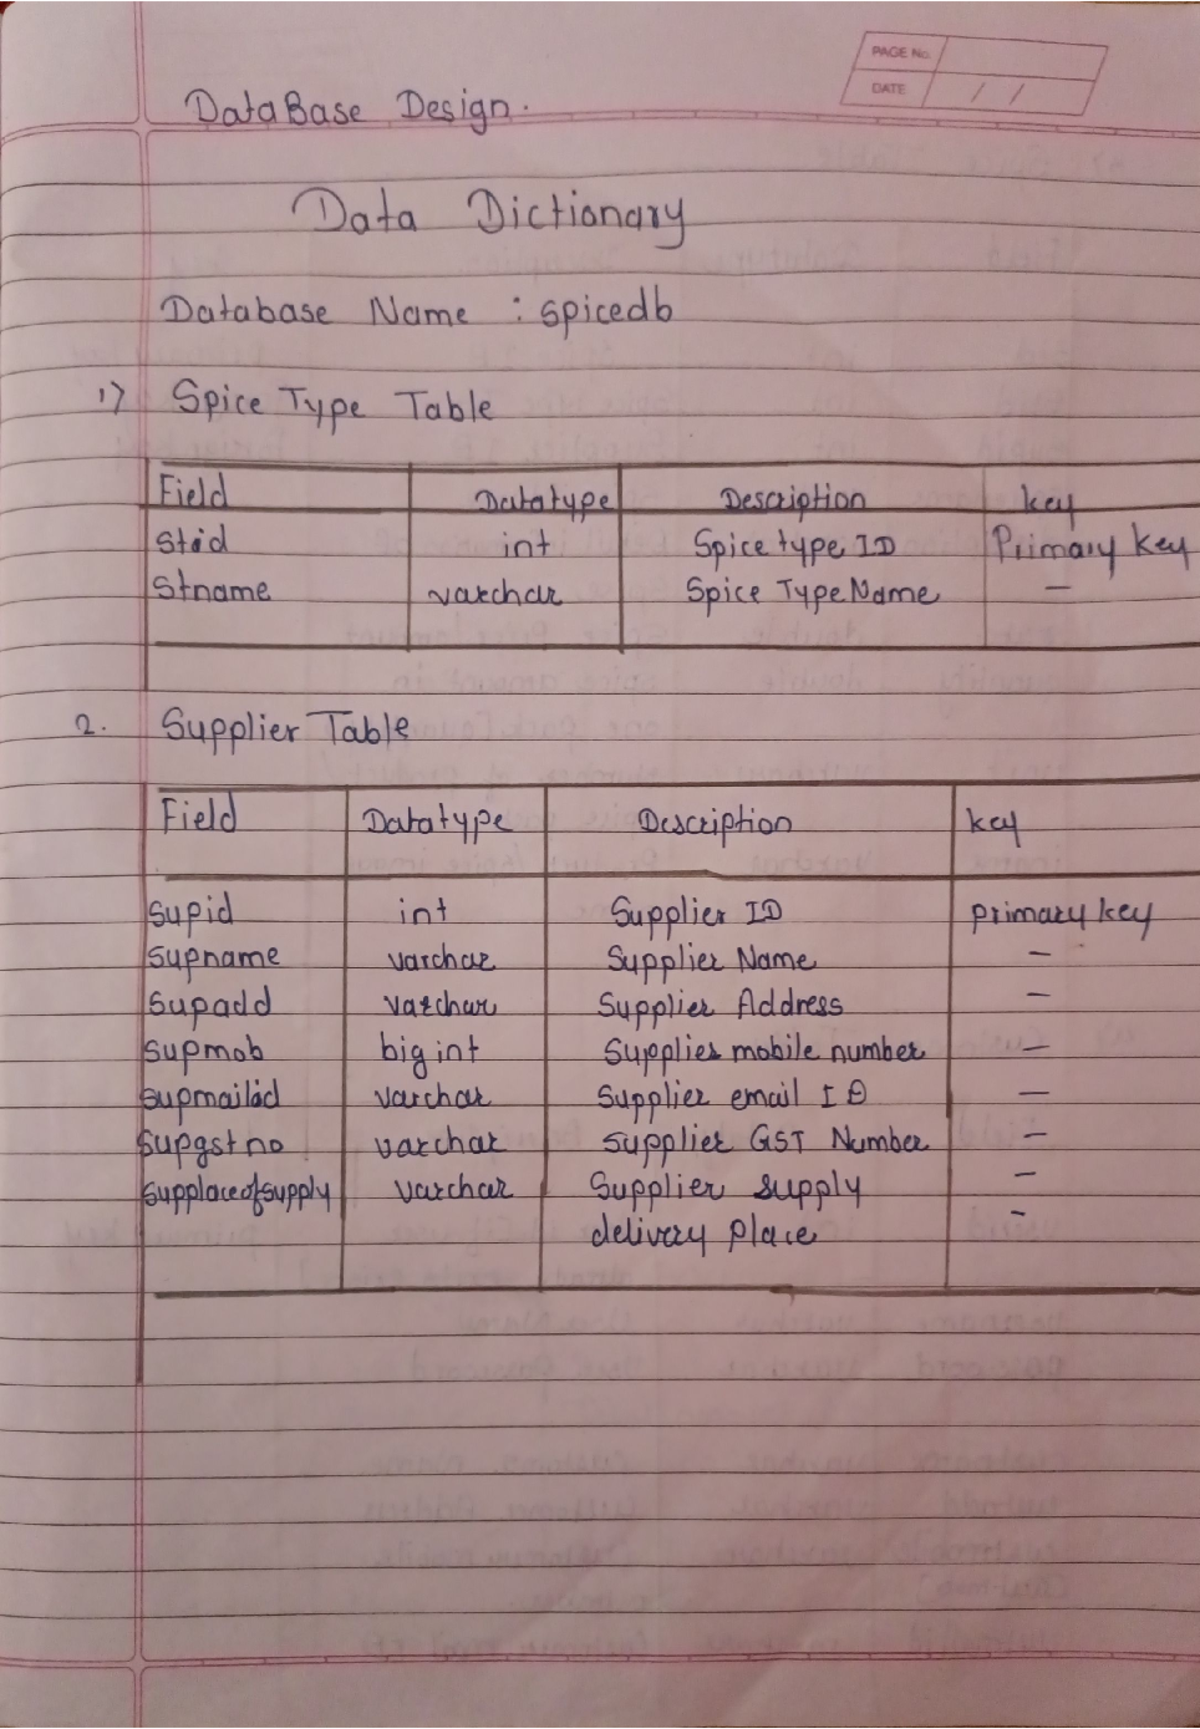 PAGE No.
DATE / /
DataBase Design.
Data Dictionary
Database Name : spicedb
1) Spice Type Table
Field Datatype Description key
Stid int Spice type ID Primary key
Stname varchar Spice Type Name –
2. Supplier Table
Field Datatype Description key
supid int Supplier ID primary key
supname varchar Supplier Name –
supadd varchar Supplier Address –
supmob big int Supplies mobile number –
supmailid varchar Supplier email ID –
supgstno varchar supplier GST Number –
supplaceofsupply varchar Supplier supply –
delivery place –